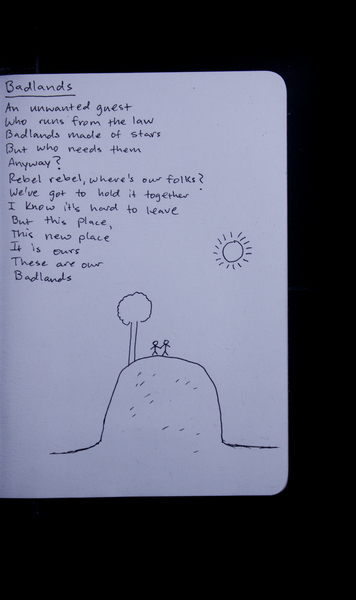 Badlands
An unwanted guest
Who runs from the law
Badlands made of stars
But who needs them
Anyway?
Rebel rebel, where's our folks?
We've got to hold it together
I know it's hard to leave
But this place,
This new place
It is ours
These are our
Badlands